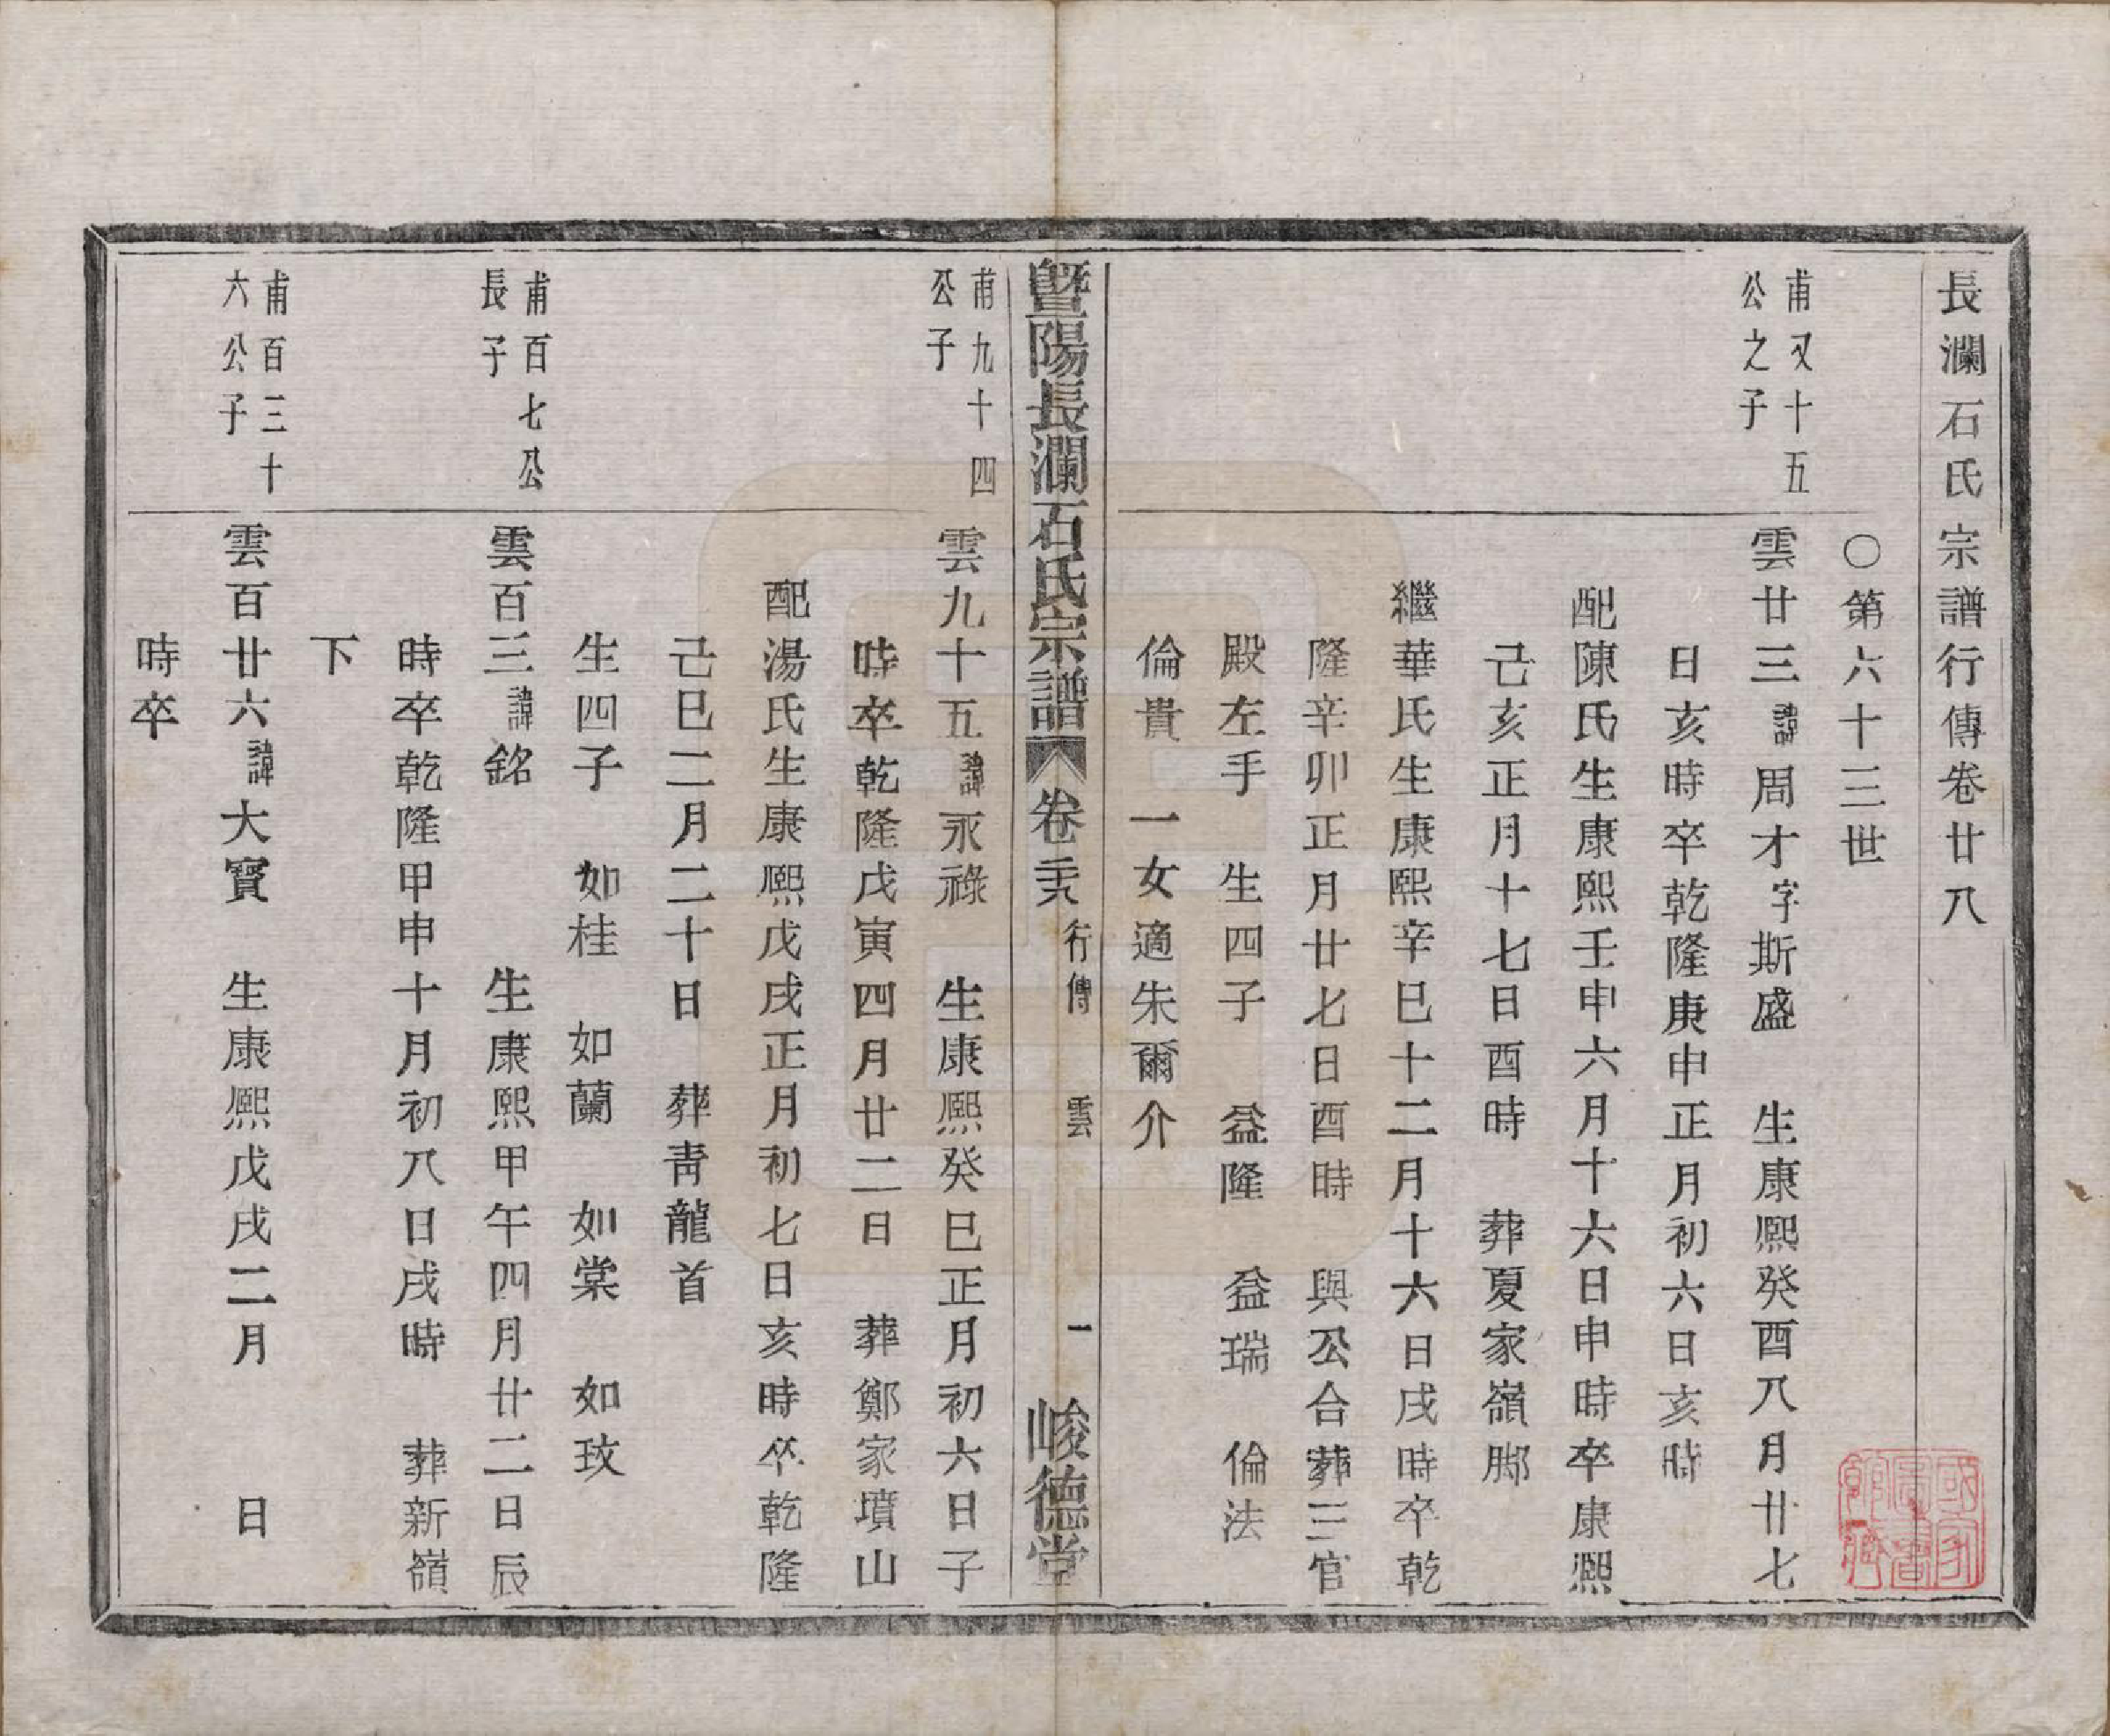 長瀾石氏宗譜行傳卷廿八
〇第六十三世
甫又十五
公之子
雲廿三諱周才字斯盛　生康熙癸酉八月廿七
日亥時卒乾隆庚申正月初六日亥時
配陳氏生康熙壬申六月十六日申時卒康熙
己亥正月十七日酉時　葬夏家嶺脚
繼華氏生康熙辛巳十二月十六日戌時卒乾
隆辛卯正月廿七日酉時　與公合葬三官
殿左手　生四子　益隆　益瑞　倫法
倫貴　一女適朱爾介
暨陽長瀾石氏宗譜　卷二十八　行傳　雲　一　峻德堂
甫九十四
公子
雲九十五諱永祿　生康熙癸巳正月初六日子
時卒乾隆戊寅四月廿二日　葬鄭家墳山
配湯氏生康熙戊戌正月初七日亥時卒乾隆
己巳二月二十日　葬靑龍首
生四子　如桂　如蘭　如棠　如玫
甫百七公
長子
雲百三諱銘　生康熙甲午四月廿二日辰
時卒乾隆甲申十月初八日戌時　葬新嶺
下
甫百三十
六公子
雲百廿六諱大寳　生康熙戊戌二月　日
時卒
國家圖書館藏